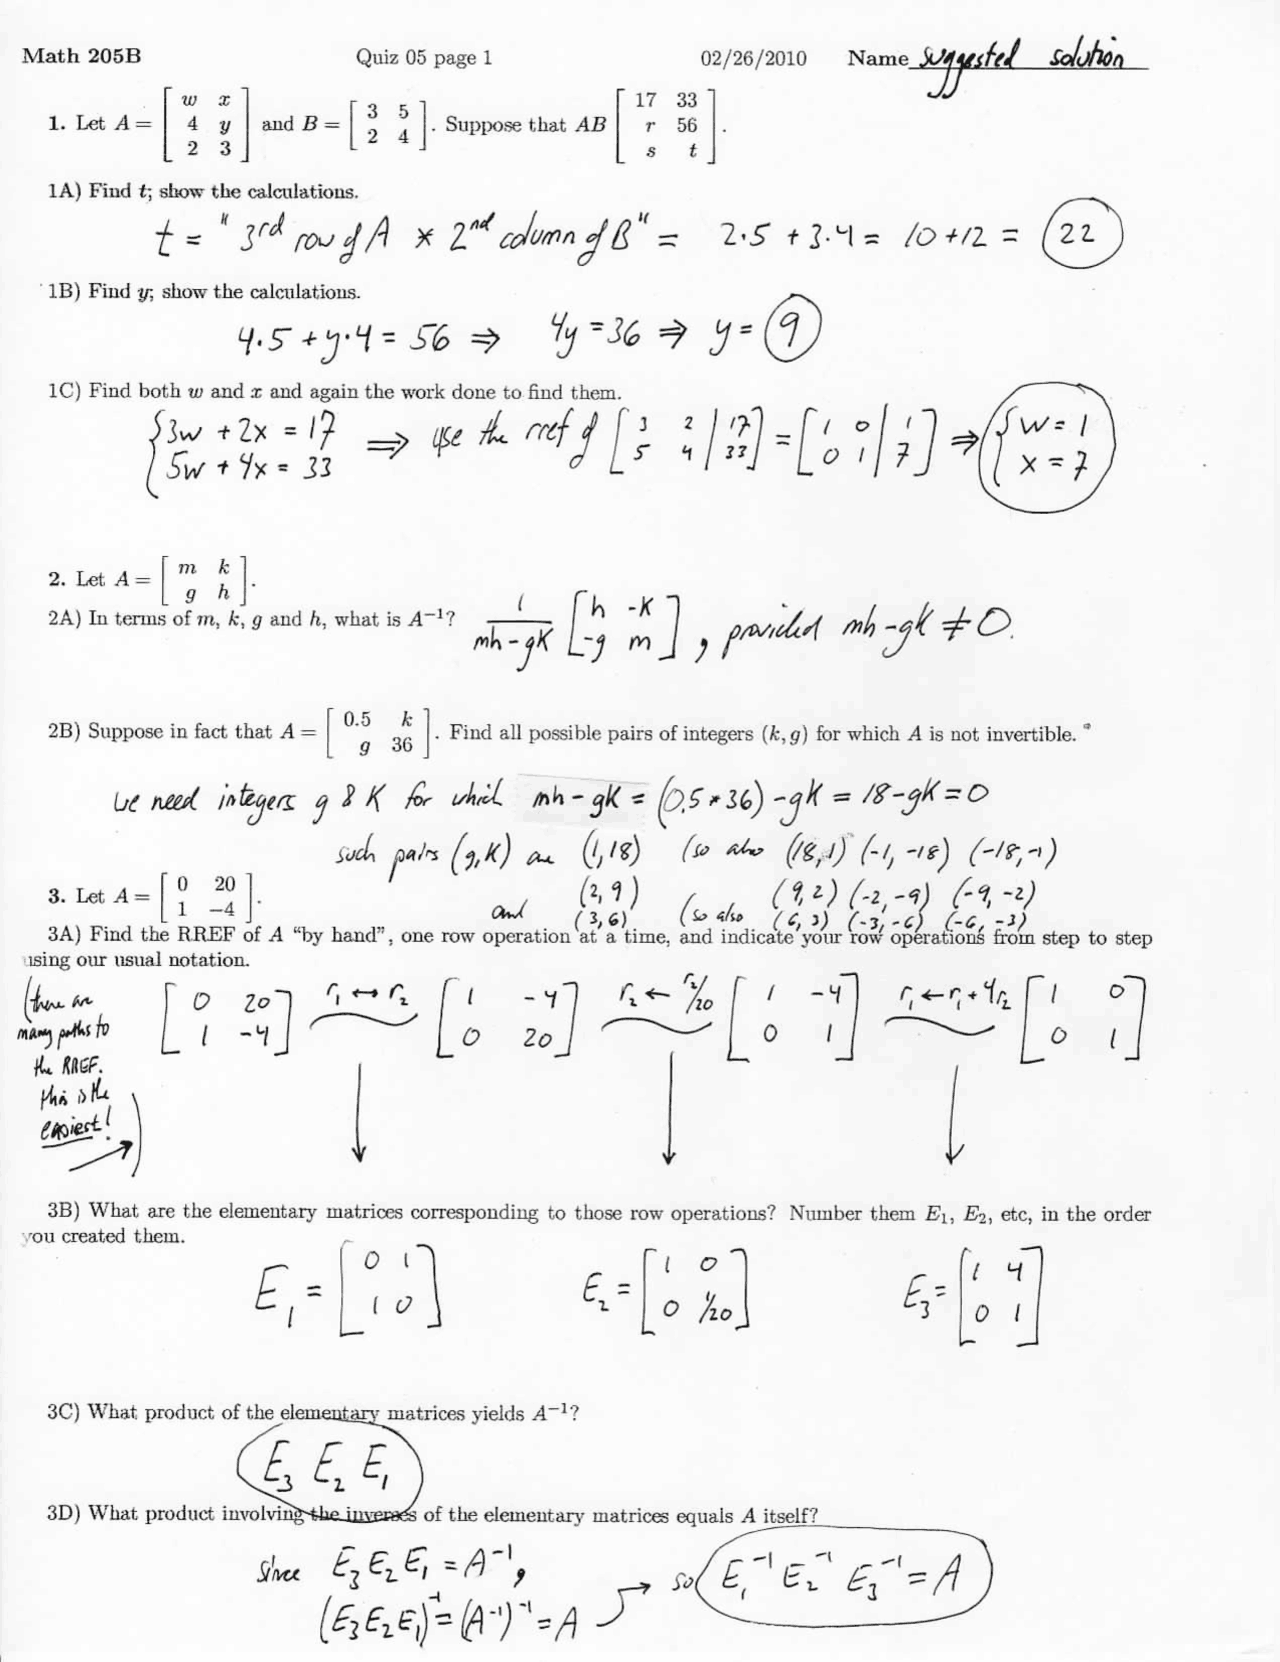 Math 205B Quiz 05 page 1 02/26/2010 Name suggested solution
1. Let A = [ w x ; 4 y ; 2 3 ] and B = [ 3 5 ; 2 4 ]. Suppose that AB [ 17 33 ; r 56 ; s t ].
1A) Find t; show the calculations.
t = "3rd row of A * 2nd column of B" = 2·5 + 3·4 = 10 + 12 = 22
1B) Find y; show the calculations.
4·5 + y·4 = 56 ⇒ 4y = 36 ⇒ y = 9
1C) Find both w and x and again the work done to find them.
{ 3w + 2x = 17 ; 5w + 4x = 33 ⇒ use the rref of [ 3 2 | 17 ; 5 4 | 33 ] = [ 1 0 | 1 ; 0 1 | 7 ] ⇒ { w = 1 ; x = 7
2. Let A = [ m k ; g h ].
2A) In terms of m, k, g and h, what is A⁻¹? 1/(mh - gk) [ h -k ; -g m ], provided mh - gk ≠ 0.
2B) Suppose in fact that A = [ 0.5 k ; g 36 ]. Find all possible pairs of integers (k, g) for which A is not invertible.
we need integers g & k for which mh - gk = (0.5 * 36) - gk = 18 - gk = 0
such pairs (g,k) are (1,18) (so also (18,1) (-1,-18) (-18,-1)
(2,9) (9,2) (-2,-9) (-9,-2)
and (3,6) (so also (6,3) (-3,-6) (-6,-3)
3. Let A = [ 0 20 ; 1 -4 ].
3A) Find the RREF of A "by hand", one row operation at a time, and indicate your row operations from step to step
using our usual notation.
(there are
many paths to
the RREF.
this is the
easiest!
[ 0 20 ; 1 -4 ] r₁ ↔ r₂ [ 1 -4 ; 0 20 ] r₂ ← r₂/20 [ 1 -4 ; 0 1 ] r₁ ← r₁ + 4r₂ [ 1 0 ; 0 1 ]
3B) What are the elementary matrices corresponding to those row operations? Number them E₁, E₂, etc, in the order
you created them.
E₁ = [ 0 1 ; 1 0 ] E₂ = [ 1 0 ; 0 1/20 ] E₃ = [ 1 4 ; 0 1 ]
3C) What product of the elementary matrices yields A⁻¹?
E₃ E₂ E₁
3D) What product involving the inverses of the elementary matrices equals A itself?
since E₃E₂E₁ = A⁻¹,
(E₃E₂E₁)⁻¹ = (A⁻¹)⁻¹ = A → so E₁⁻¹ E₂⁻¹ E₃⁻¹ = A